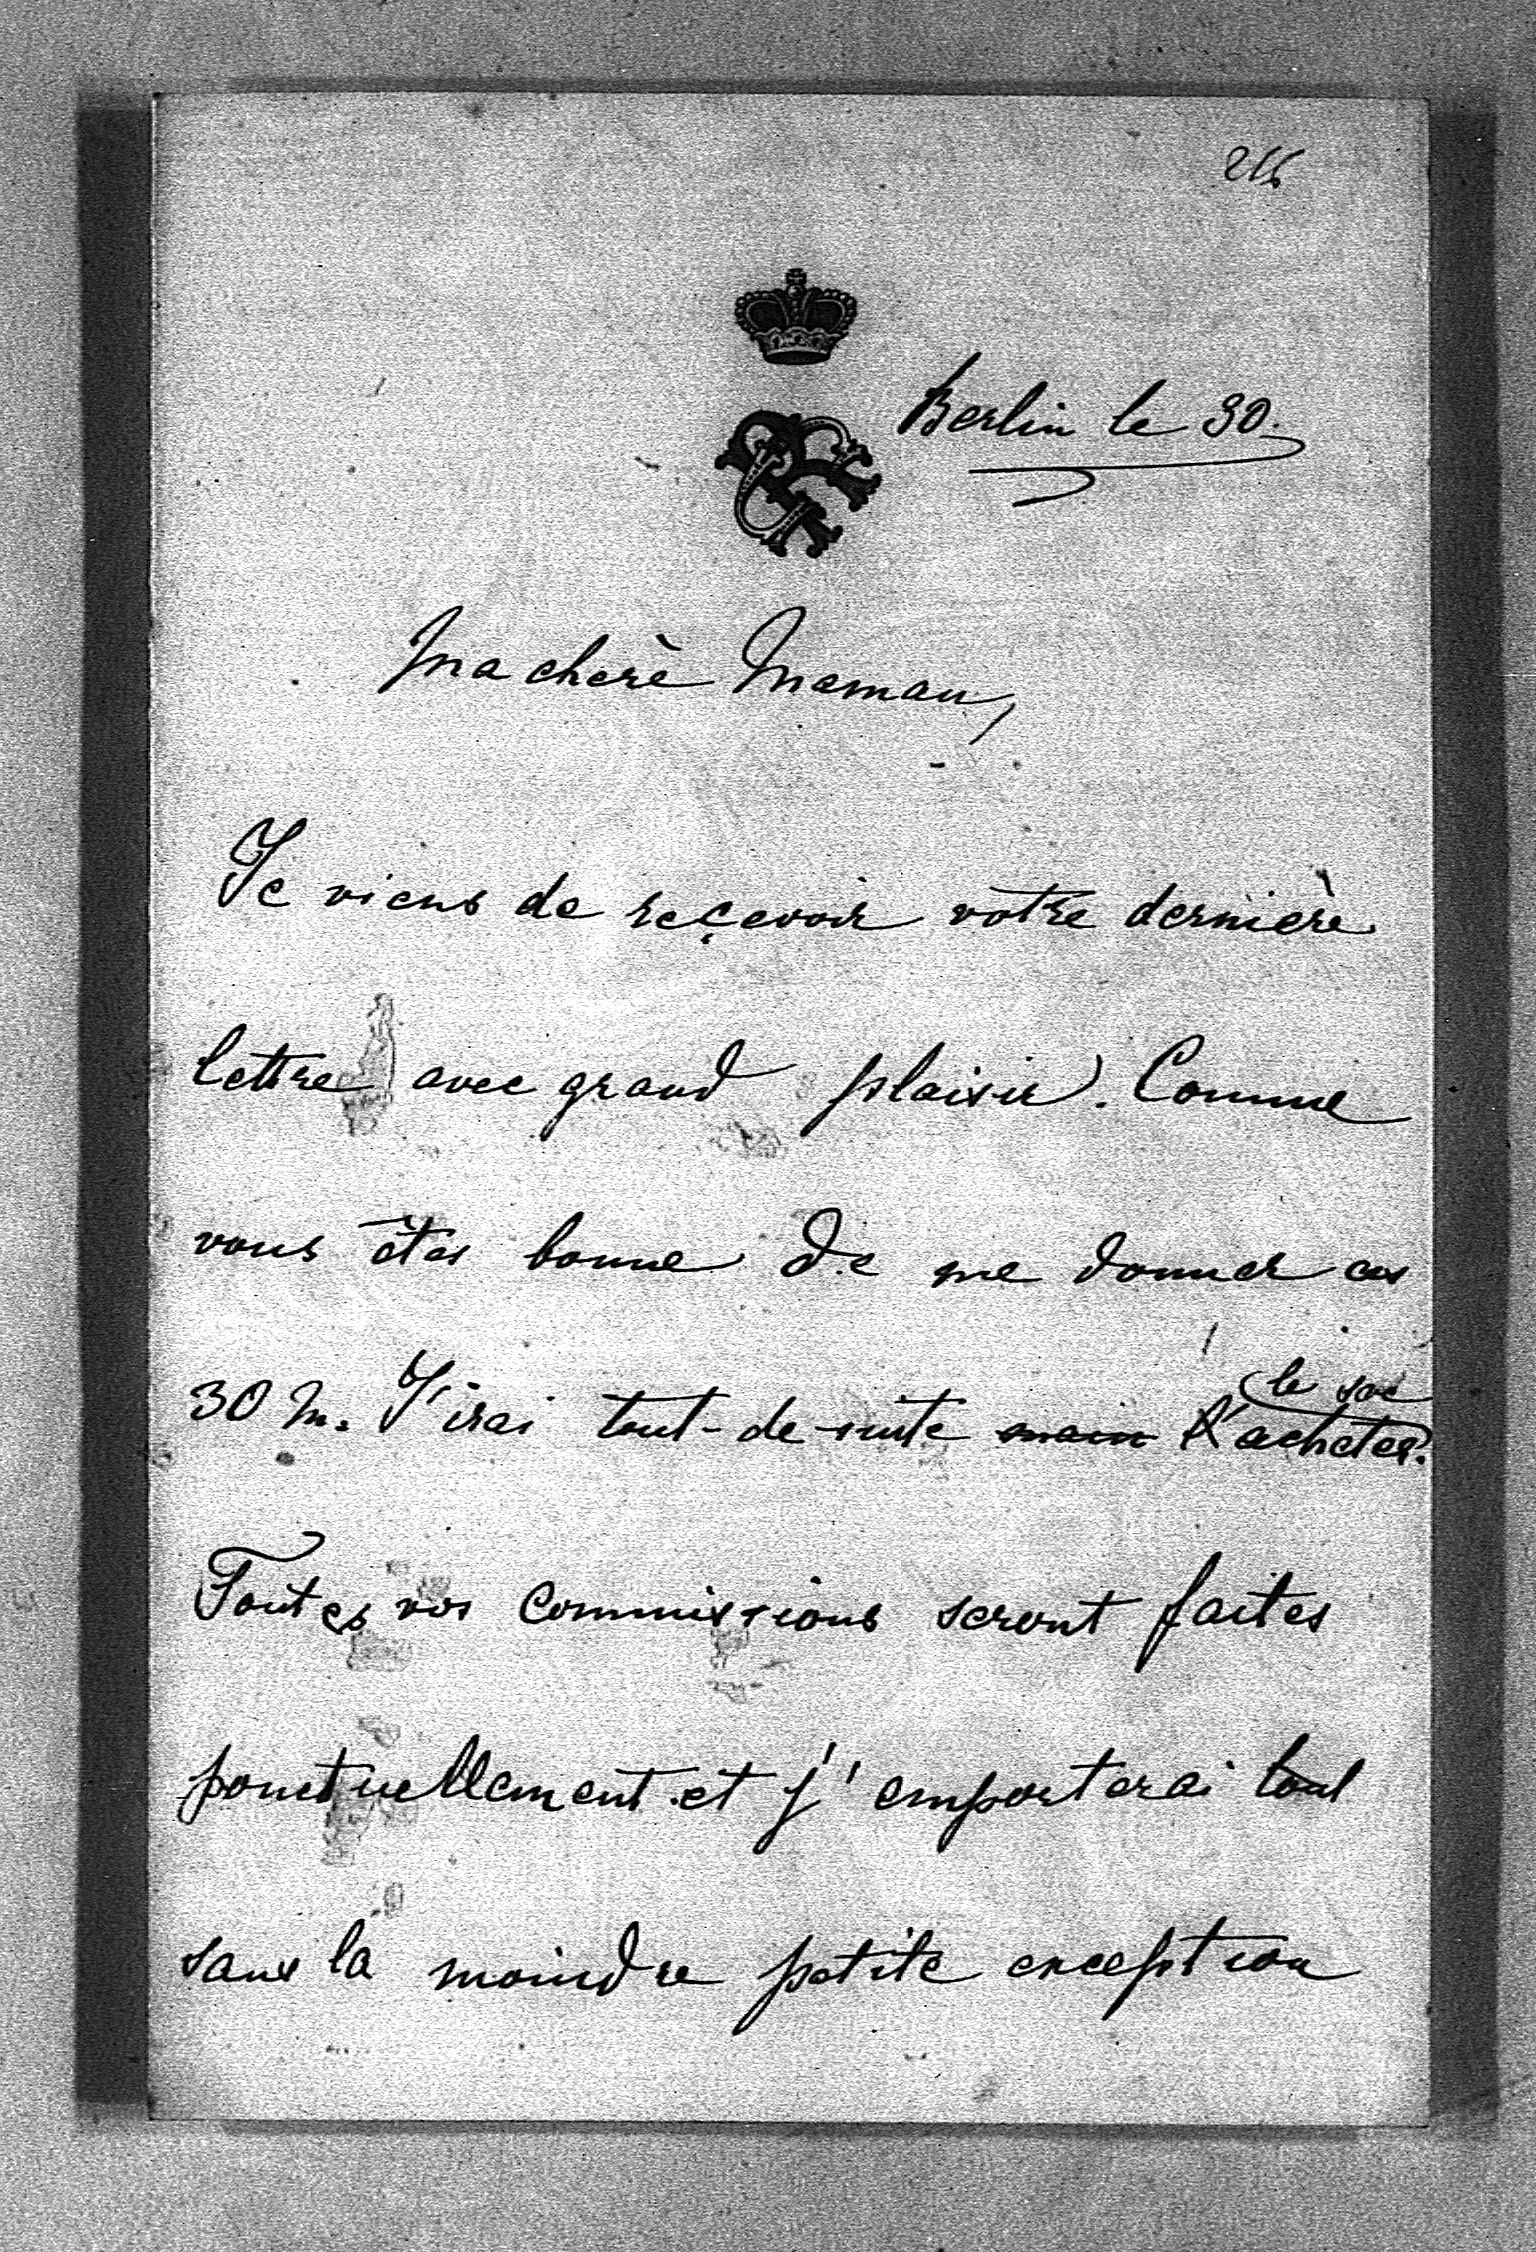 Berlin le 30.
Ma cherè Maman,
Je viens de reçevoir votre dernière
lettre avec grand plaisir. Comme
vous êtes bonne de me donner ces
30 M. J'irai tout-de-suite
le sac
l'acheter.
Toutes vos commissions seront faites
ponctuellement et j'emporterai tout
sans la moindre petite exception